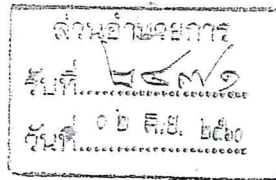 ส่วนอำนวยการ
รับที่ ๒๔๗๑
วันที่ ๐๒ ต.ค. ๒๕๖๐